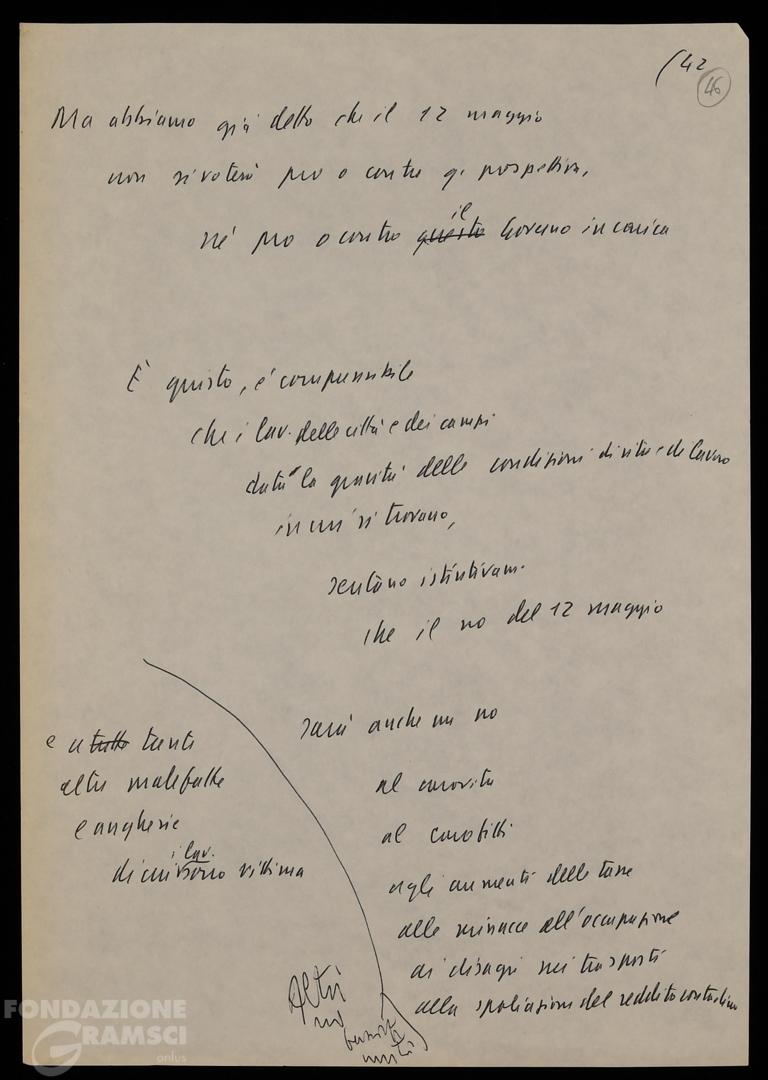 (42
46
Ma abbiamo già detto che il 12 maggio
non si voterà pro o contro q. prospettiva,
né pro o contro questo il Governo in carica
È giusto, è comprensibile
che i lav. delle città e dei campi
data la gravità delle condizioni di vita e di lavoro
in cui si trovano,
sentano istintivam.
che il no del 12 maggio
sarà anche un no
al carovita
al carofitti
agli aumenti delle tasse
alle minacce all'occupazione
ai disagi nei trasporti
alla spoliazione del reddito contadino
e a tutte tante
altre malefatte
e angherie
di cui i lav. sono vittima
Altri
no
FONDAZIONE
GRAMSCI
onlus